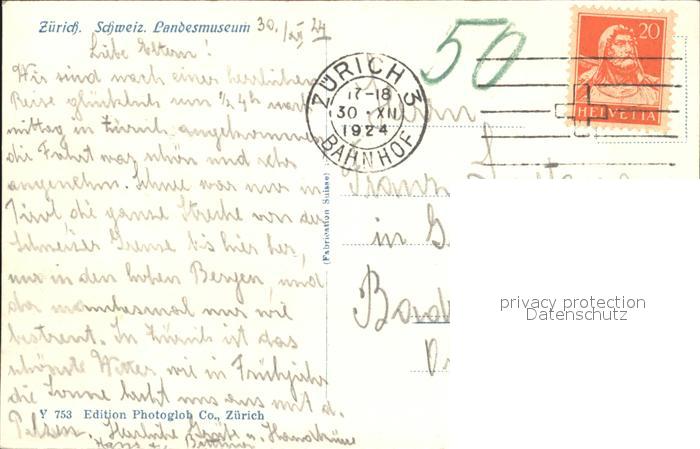 Zürich. Schweiz. Landesmuseum 30./XII 24
Liebe Eltern!
Wir sind nach einer herrlichen
Reise glücklich um ½ 4h nach-
mittag in Zürich angekommen
die Fahrt war schön und sehr
angenehm. Schnee war nur in
Tirol die ganze Strecke von der
Schweizer Grenze bis hier her,
nur in den hohen Bergen, und
da manchesmal nur wie
bestreut. In Zürich ist das
schönste Wetter wie im Frühjahr
die Sonne lacht uns aus mit d.
Pelzen. Herzliche Grüße u. Handküsse
Y 753 Edition Photoglob Co., Zürich
(Fabrication Suisse)
50
ZÜRICH 3
17-18
30 XII
1924
BAHNHOF
20
HELVETIA
Herrn
Franz
in G
Bad
privacy protection
Datenschutz